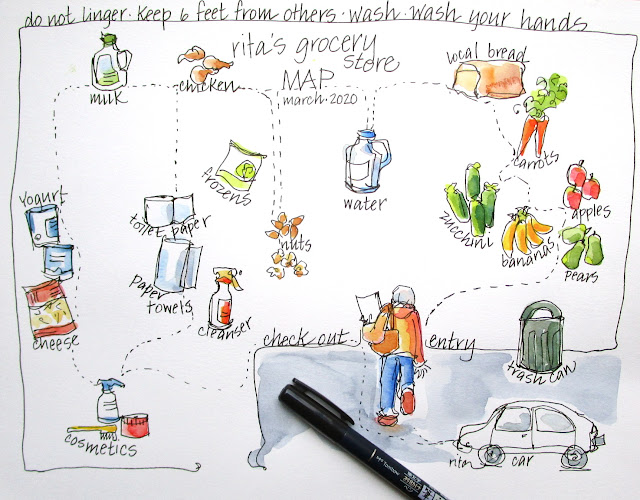 do not linger. keep 6 feet from others. wash. wash your hands
rita's grocery
store
MAP
march. 2020
milk
chicken
local bread
carrots
frozens
water
yogurt
toilet paper
zucchini
bananas
apples
pears
nuts
paper
towels
cleanser
cheese
check out
entry
trash can
cosmetics
rita
car